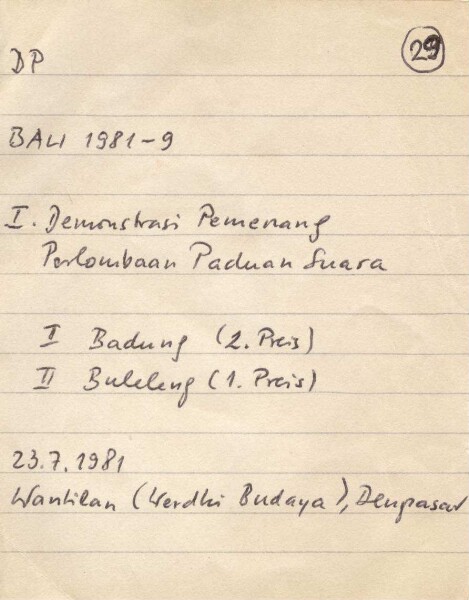 29
DP
BALI 1981-9
I. Demonstrasi Pemenang
Perlombaan Paduan Suara
I Badung (2. Preis)
II Buleleng (1. Preis)
23.7.1981
Wantilan (Werdhi Budaya), Denpasar